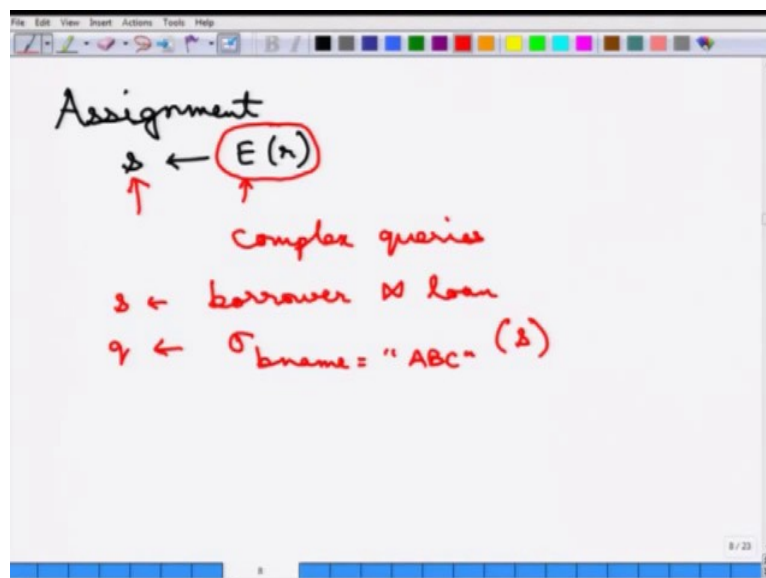 File Edit View Insert Actions Tools Help
B I
Assignment
s ← E (r)
Complex queries
s ← borrower ⋈ loan
q ← σ bname = "ABC" (s)
8 / 23
8